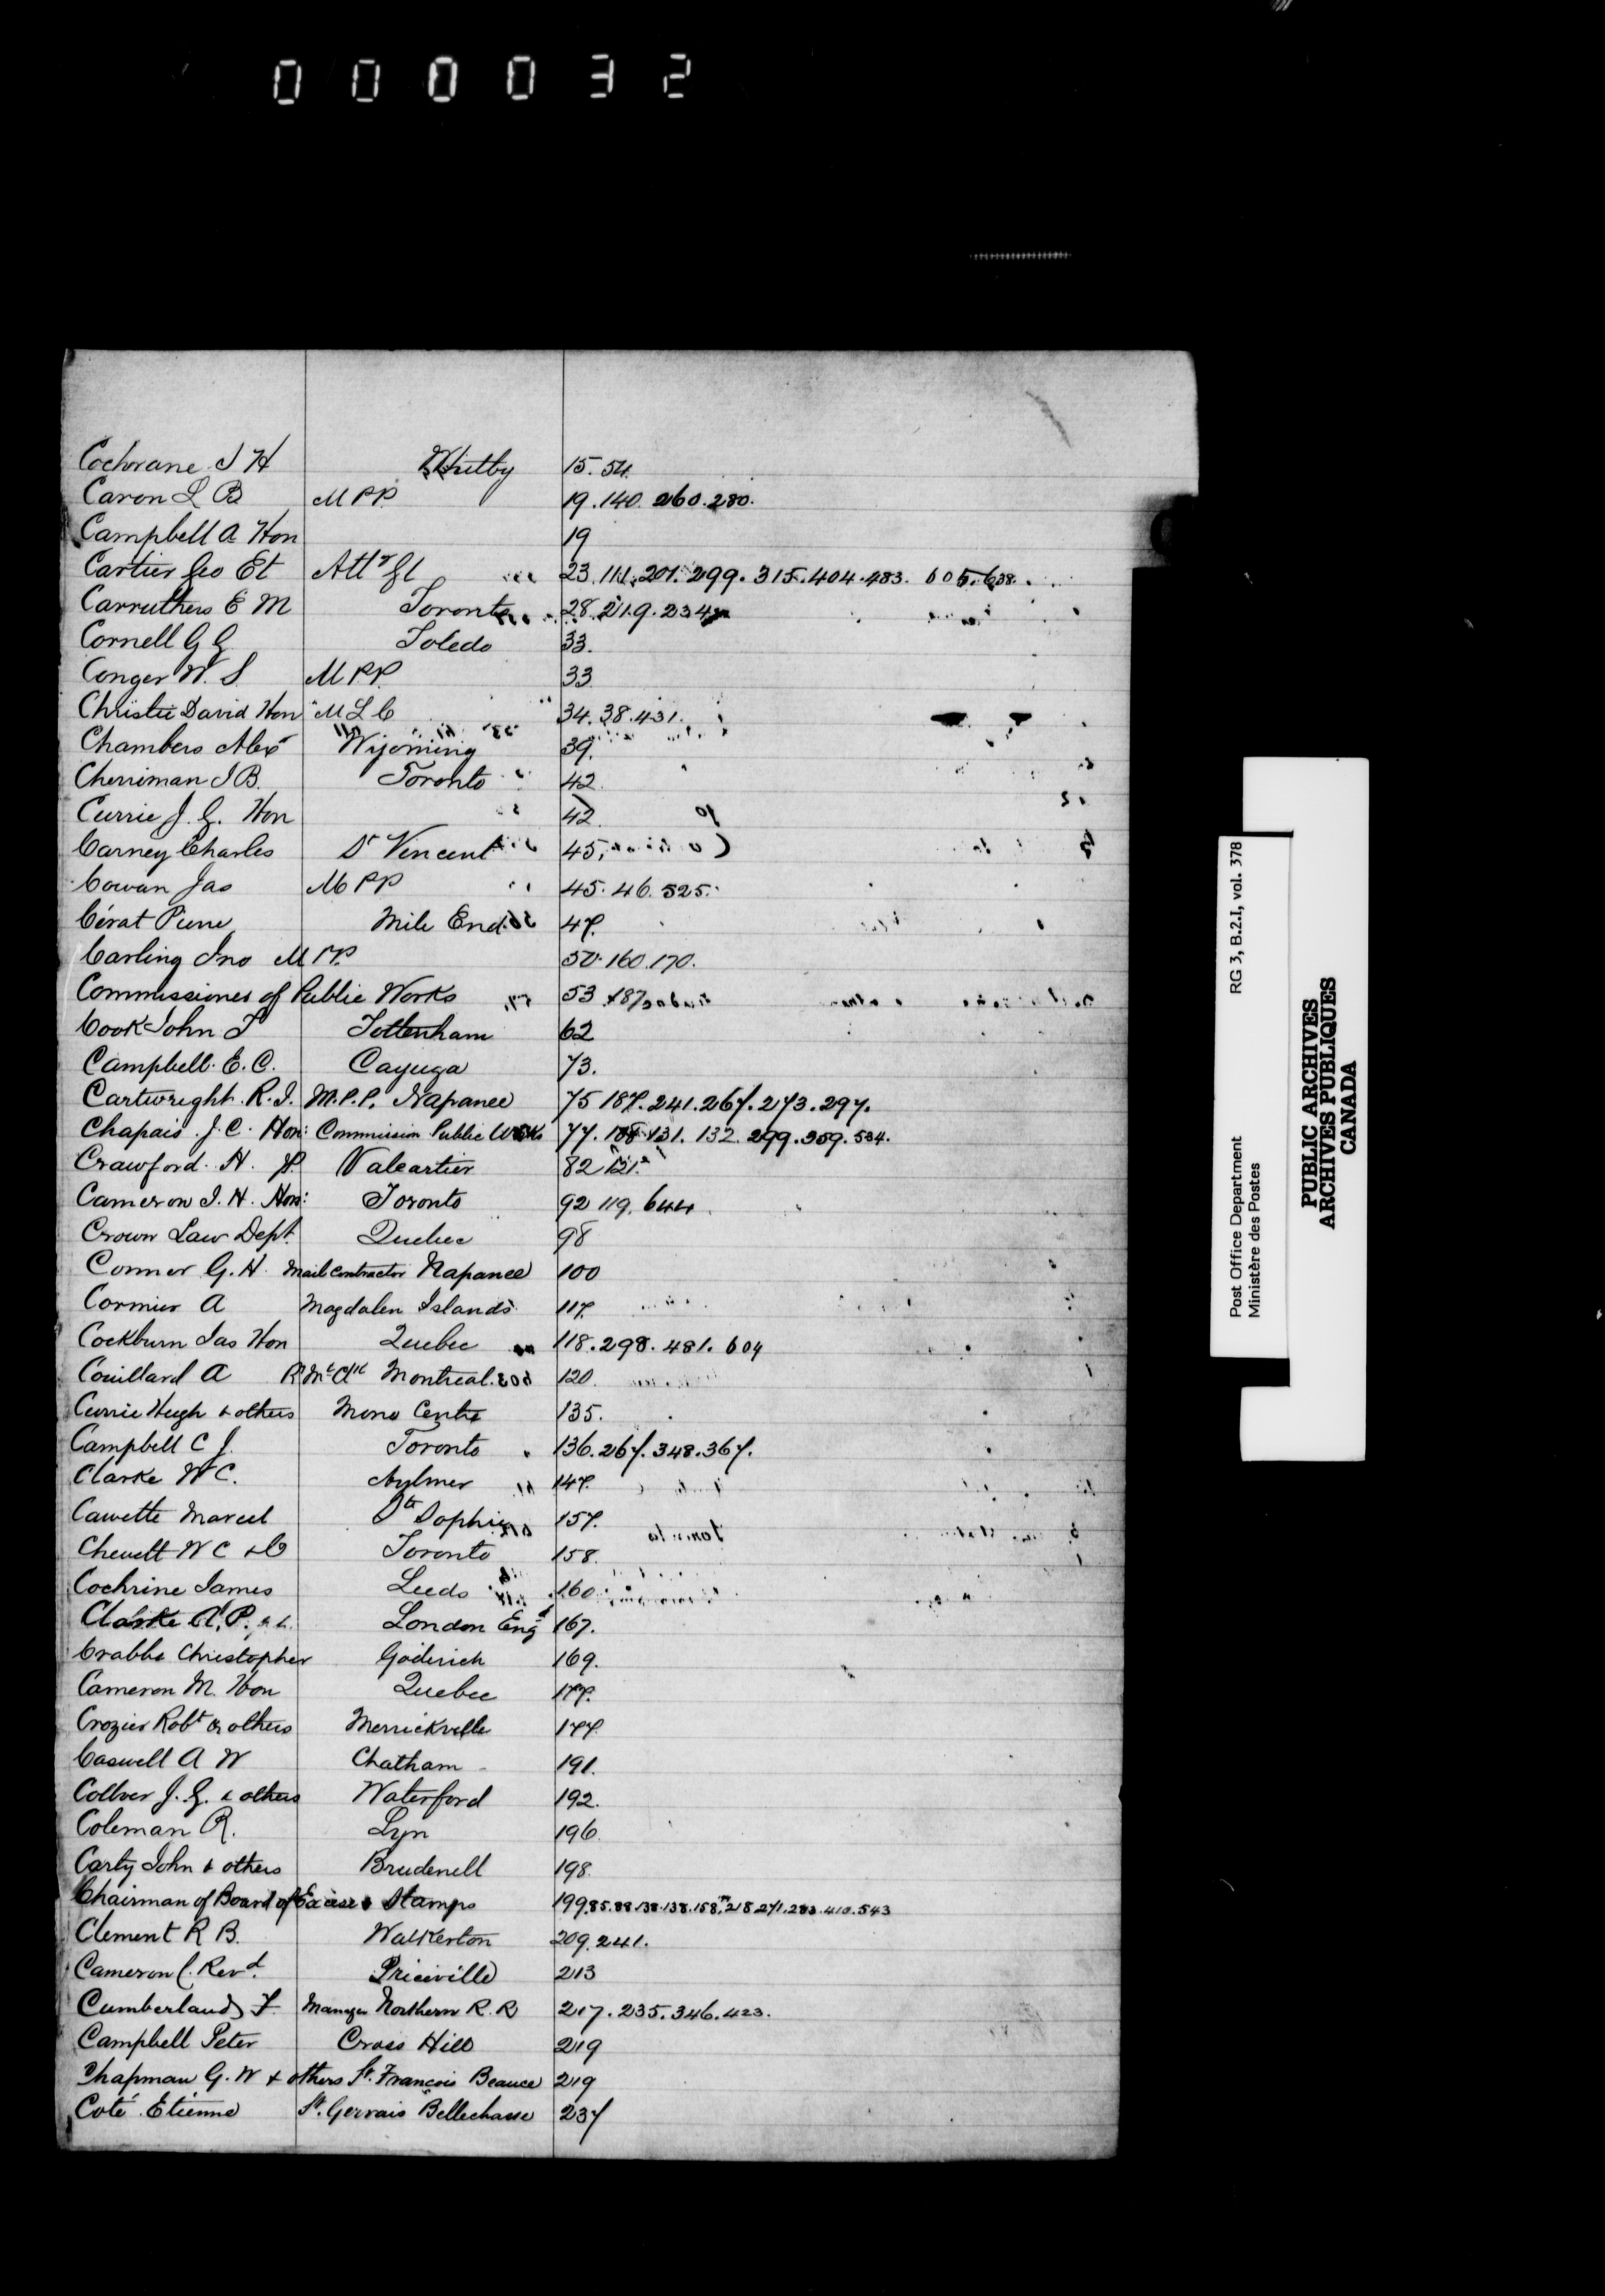 000032
Cochrane J H Whitby 15. 54.
Caron L B M P P. 19. 140. 260. 280.
Campbell A Hon 19
Cartier Geo Et Atty Gl 23. 111. 201. 299. 315. 404. 483. 605. 638.
Carruthers E M Toronto 28. 219. 234
Cornell G G Toledo 33.
Conger W. S. M P P. 33
Christie David Hon M L C 34. 38. 431.
Chambers Alexr Wyoming 39.
Cherriman J B. Toronto 42.
Currie J. G. Hon 42.
Carney Charles St Vincent 45.
Cowan Jas M P P 45. 46. 525.
Cérat Pierre Mile End. 47.
Carling Jno M P P. 50. 160. 170.
Commissioner of Public Works 53. 187
Cook John T Tottenham 62
Campbell. E. C. Cayuga 73.
Cartwright. R. J. M.P.P. Napanee 75 187. 241. 267. 273. 297.
Chapais. J. C. Hon: Commission Public Works 77. 131. 132. 299. 359. 534.
Crawford. H. Valcartier 82 121.
Cameron J. H. Hon: Toronto 92 119. 644
Crown Law Dept. Quebec 98
Conner G. H. Mail Contractor Napanee 100
Cormier A Magdalen Islands 117.
Cockburn Jas Hon Quebec 118. 298. 481. 604
Couillard A Montreal. 120.
Currie Hugh & others Mono Centre 135.
Campbell C J. Toronto 136. 267. 348. 367.
Clarke W C. Aylmer 147.
Cawette Marcel Ste Sophie 157.
Chewett W C & Co Toronto 158.
Cochrine James Leeds 160.
Clarke A. P. London Engd 167.
Crabbe Christopher Goderich 169.
Cameron M. Hon Quebec 177.
Crozier Robt & others Merrickville 177.
Caswell A W Chatham 191.
Collver J. G. & others Waterford 192.
Coleman R. Lyn 196.
Carty John & others Brudenell 198.
Chairman of Board of Excise & Stamps 199. 85. 88. 138. 138. 158. 218. 271. 283. 410. 543
Clement R B. Walkerton 209. 241.
Cameron C. Revd. Priceville 213
Cumberland F. Manager Northern R. R 217. 235. 346. 423.
Campbell Peter Cross Hill 219
Chapman G. W & others St. Francois Beauce 219
Coté. Etienne St. Gervais Bellechasse 237
Post Office Department RG 3, B.2.I, vol. 378
Ministère des Postes
PUBLIC ARCHIVES
ARCHIVES PUBLIQUES
CANADA